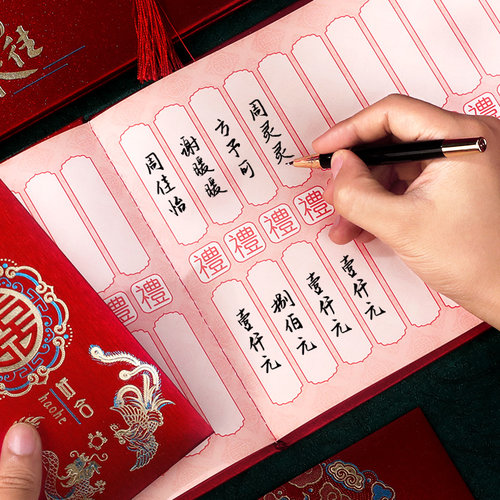 周佳怡
谢暖暖
方予可
周灵灵
禮
禮
禮
禮
禮
禮
壹仟元
捌佰元
壹仟元
壹仟元
百合
baohe